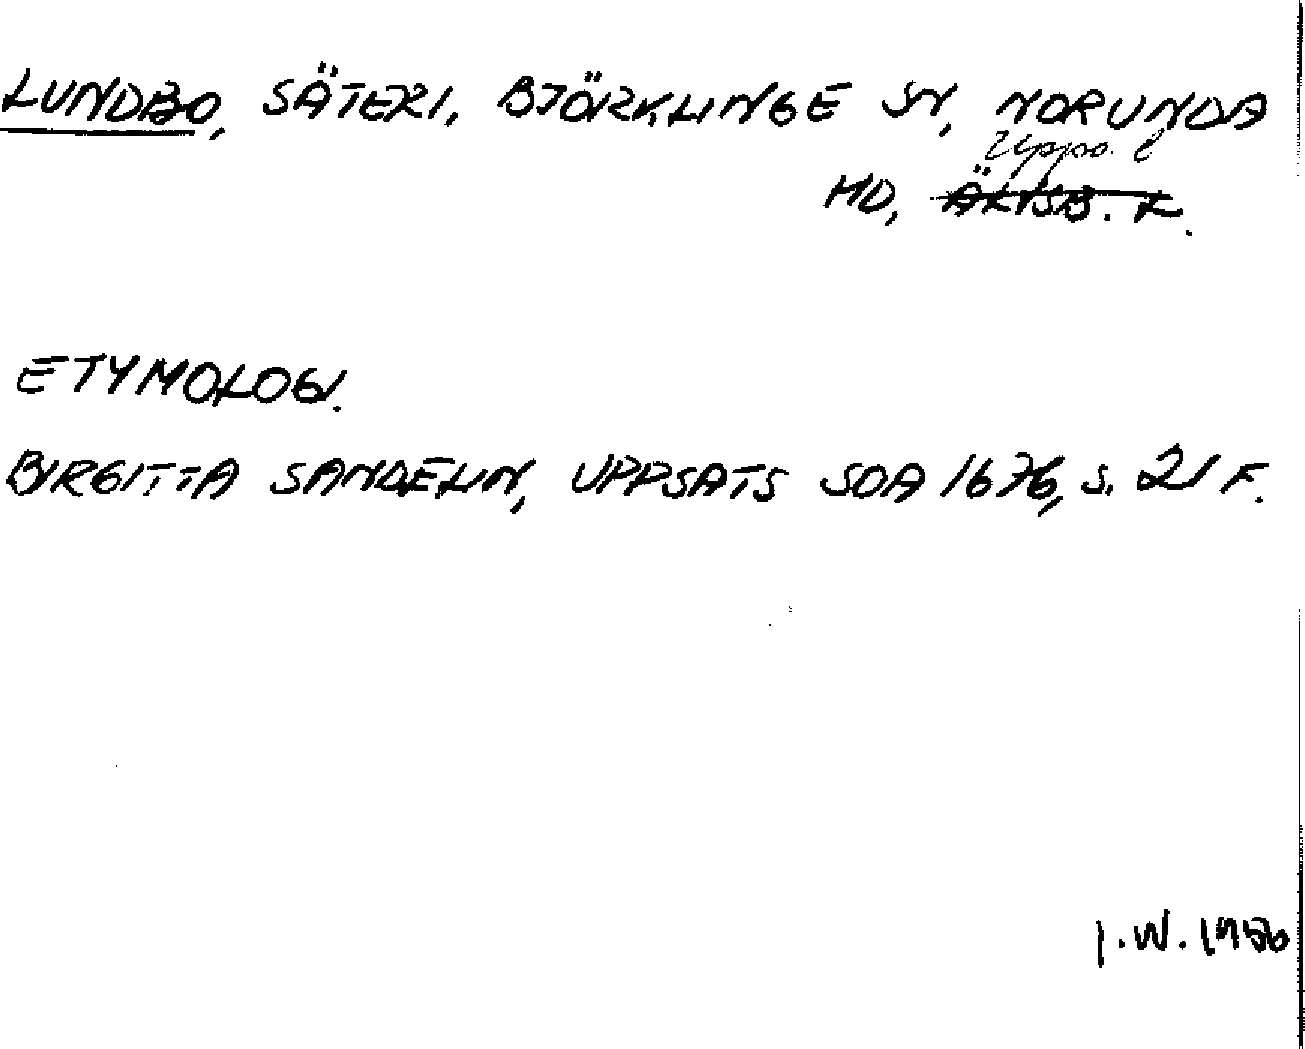 LUNDBO, SÄTERI, BJÖRKLINGE SN, NORUNDA
Upps. l
HD, ÄLVSB. L.
ETYMOLOGI.
BIRGITTA SANDELIN, UPPSATS SOA 1676, S. 21 F.
I.W. 1986